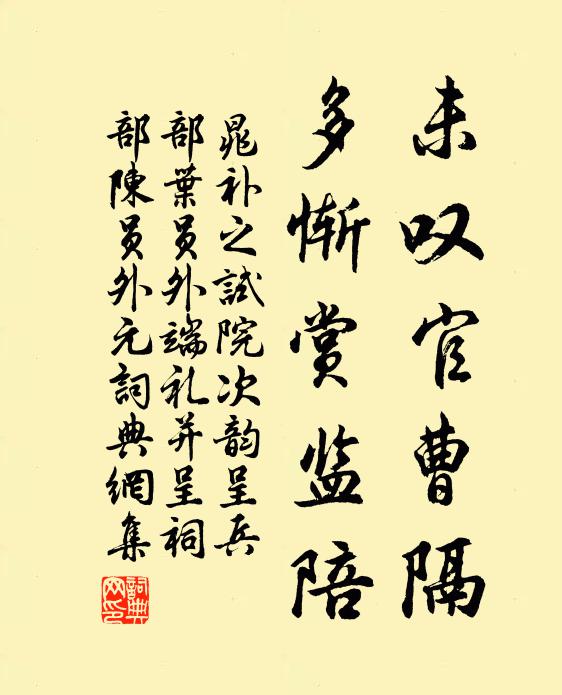 未叹官曹隔
多惭赏监陪
晁补之試院次韵呈兵
部葉員外端礼并呈祠
部陳員外元詞典網集
詞典网印